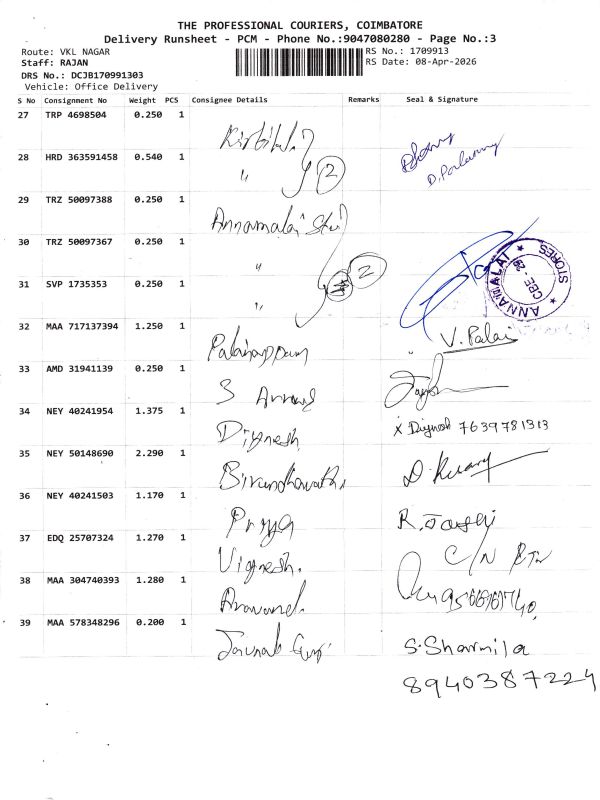 THE PROFESSIONAL COURIERS, COIMBATORE
Delivery Runsheet - PCM - Phone No.:9047080280 - Page No.:3
Route: VKL NAGAR RS No.: 1709913
Staff: RAJAN RS Date: 08-Apr-2026
DRS No.: DCJB170991303
Vehicle: Office Delivery
S No Consignment No Weight PCS Consignee Details Remarks Seal & Signature
27 TRP 4698504 0.250 1
28 HRD 363591458 0.540 1 " 2
29 TRZ 50097388 0.250 1 Annamalai
30 TRZ 50097367 0.250 1 " 2
31 SVP 1735353 0.250 1 "
ANNAMALAI STORES
32 MAA 717137394 1.250 1 V. Palai
33 AMD 31941139 0.250 1 S
34 NEY 40241954 1.375 1 Dignesh x Dignesh 7639781313
35 NEY 50148690 2.290 1
36 NEY 40241503 1.170 1 Priya
37 EDQ 25707324 1.270 1 Vignesh. C/N
38 MAA 304740393 1.280 1 Aravind.
39 MAA 578348296 0.200 1 S. Sharmila
8940387224